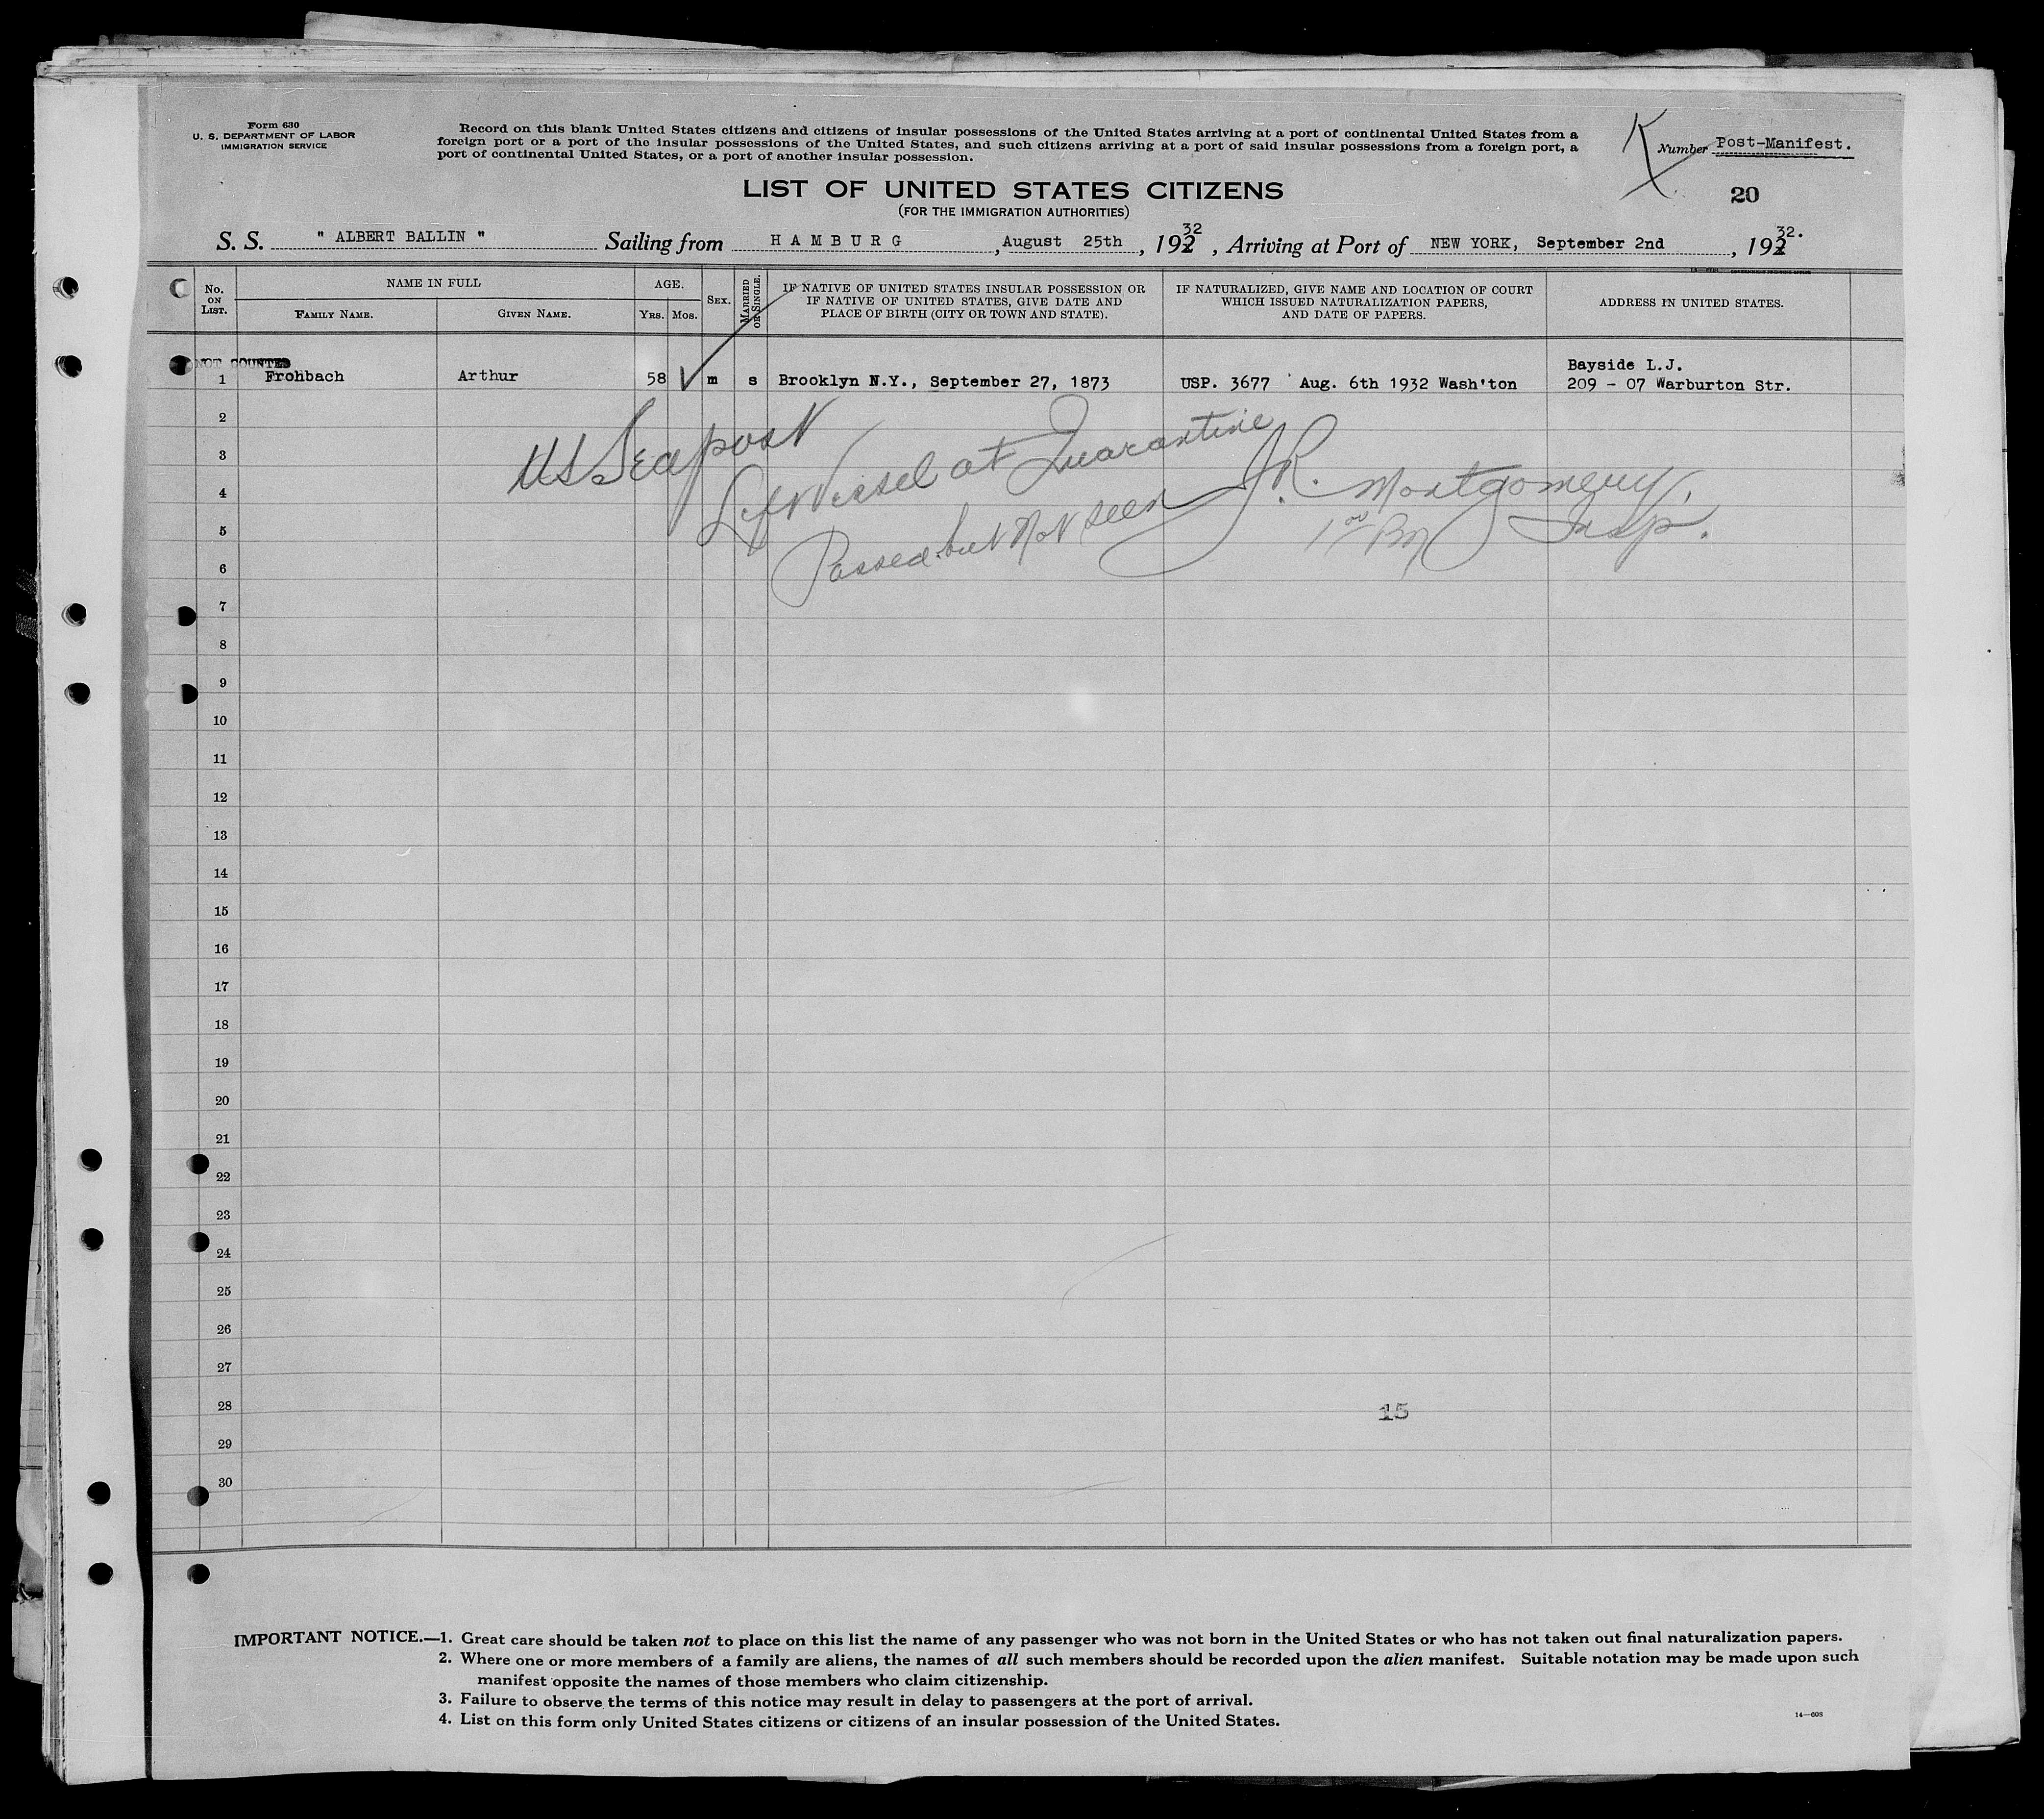 Form 630
U. S. DEPARTMENT OF LABOR
IMMIGRATION SERVICE
Record on this blank United States citizens and citizens of insular possessions of the United States arriving at a port of continental United States from a
foreign port or a port of the insular possessions of the United States, and such citizens arriving at a port of said insular possessions from a foreign port, a
port of continental United States, or a port of another insular possession.
Number Post-Manifest.
20
LIST OF UNITED STATES CITIZENS
(FOR THE IMMIGRATION AUTHORITIES)
S. S. " ALBERT BALLIN " Sailing from HAMBURG, August 25th, 1932, Arriving at Port of NEW YORK, September 2nd, 1932.
No. ON LIST. NAME IN FULL AGE. SEX. MARRIED OR SINGLE. IF NATIVE OF UNITED STATES INSULAR POSSESSION OR IF NATIVE OF UNITED STATES, GIVE DATE AND PLACE OF BIRTH (CITY OR TOWN AND STATE). IF NATURALIZED, GIVE NAME AND LOCATION OF COURT WHICH ISSUED NATURALIZATION PAPERS, AND DATE OF PAPERS. ADDRESS IN UNITED STATES.
FAMILY NAME. GIVEN NAME. YRS. MOS.
NOT COUNTED
Bayside L.J.
1 Frohbach Arthur 58 m s Brooklyn N.Y., September 27, 1873 USP. 3677 Aug. 6th 1932 Wash'ton 209 - 07 Warburton Str.
2
US Seapost
3
Left Vessel at Quarantine
4
J.R. Montgomery,
5
Insp.
Passed but Not seen
6
7
8
9
10
11
12
13
14
15
16
17
18
19
20
21
22
23
24
25
26
27
28
15
29
30
IMPORTANT NOTICE.—1. Great care should be taken not to place on this list the name of any passenger who was not born in the United States or who has not taken out final naturalization papers.
2. Where one or more members of a family are aliens, the names of all such members should be recorded upon the alien manifest. Suitable notation may be made upon such
manifest opposite the names of those members who claim citizenship.
3. Failure to observe the terms of this notice may result in delay to passengers at the port of arrival.
4. List on this form only United States citizens or citizens of an insular possession of the United States.
14—608